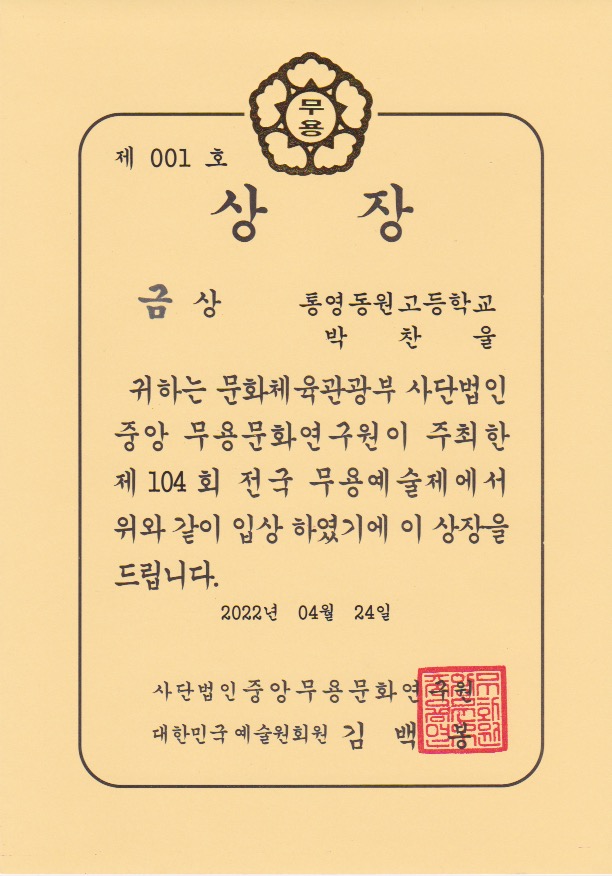 무용
제 001 호
상 장
금 상 통영동원고등학교
박 찬 울
귀하는 문화체육관광부 사단법인
중앙 무용문화연구원이 주최한
제 104 회 전국 무용예술제에서
위와 같이 입상 하였기에 이 상장을
드립니다.
2022년 04월 24일
사단법인중앙무용문화연구원
대한민국 예술원회원 김 백 봉